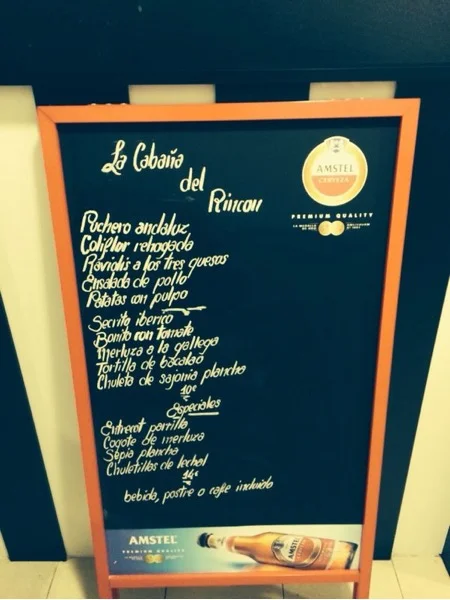 La Cabaña
del
Rincon
AMSTEL
CERVEZA
PREMIUM QUALITY
Puchero andaluz
Coliflor rehogada
Raviolis a los tres quesos
Ensalada de pollo
Patatas con pulpo
Secreto iberico
Bonito con tomate
Merluza a la gallega
Tortilla de bacalao
Chuleta de sajonia plancha
10€
Especiales
Entrecot parrilla
Cogote de merluza
Sepia plancha
Chuletillas de lechal
14€
bebida, postre o cafe incluido
AMSTEL
PREMIUM QUALITY
AMSTEL